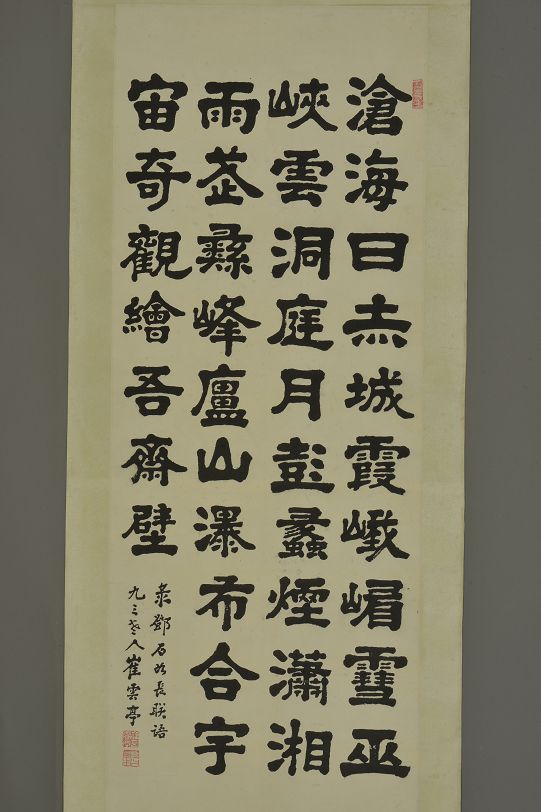 滄海日赤城霞峨嵋雪巫
峽雲洞庭月彭蠡煙瀟湘
雨武彝峰廬山瀑布合宇
宙奇觀繪吾齋壁
彔鄧石如長联语
九三老人崔雲亭